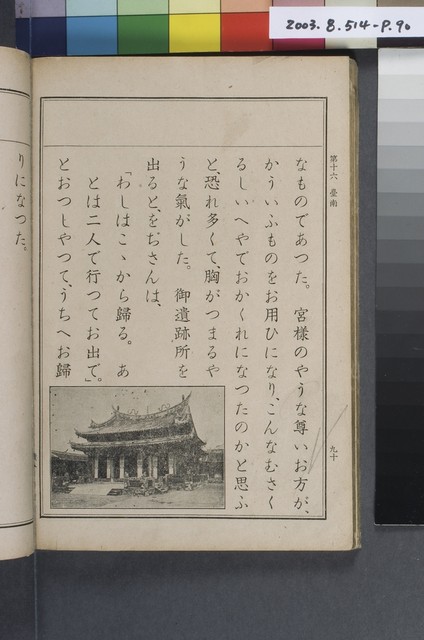 2003.8.514-P.90
第十六 臺南
九十
なものであつた。 宮樣のやうな尊いお方が、
かういふものをお用ひになり、こんなむさく
るしいへやでおかくれになつたのかと思ふ
と、恐れ多くて、胸がつまるや
うな氣がした。 御遺跡所を
出ると、をぢさんは、
「わしはこゝから歸る。あ
とは二人で行つてお出で。」
とおつしやつて、うちへお歸
りになつた。